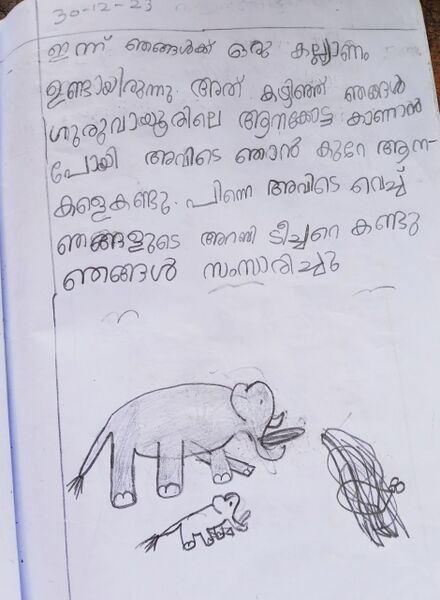 30-12-23
ഇന്ന് ഞങ്ങൾക്ക് ഒരു കല്ല്യാണം
ഉണ്ടായിരുന്നു. അത് കഴിഞ്ഞ് ഞങ്ങൾ
ഗുരുവായൂരിലെ ആനക്കോട്ട കാണാൻ
പോയി അവിടെ ഞാൻ കുറേ ആന-
കളെകണ്ടു. പിന്നെ അവിടെ വെച്ച്
ഞങ്ങളുടെ അറബി ടീച്ചറെ കണ്ടു
ഞങ്ങൾ സംസാരിച്ചു